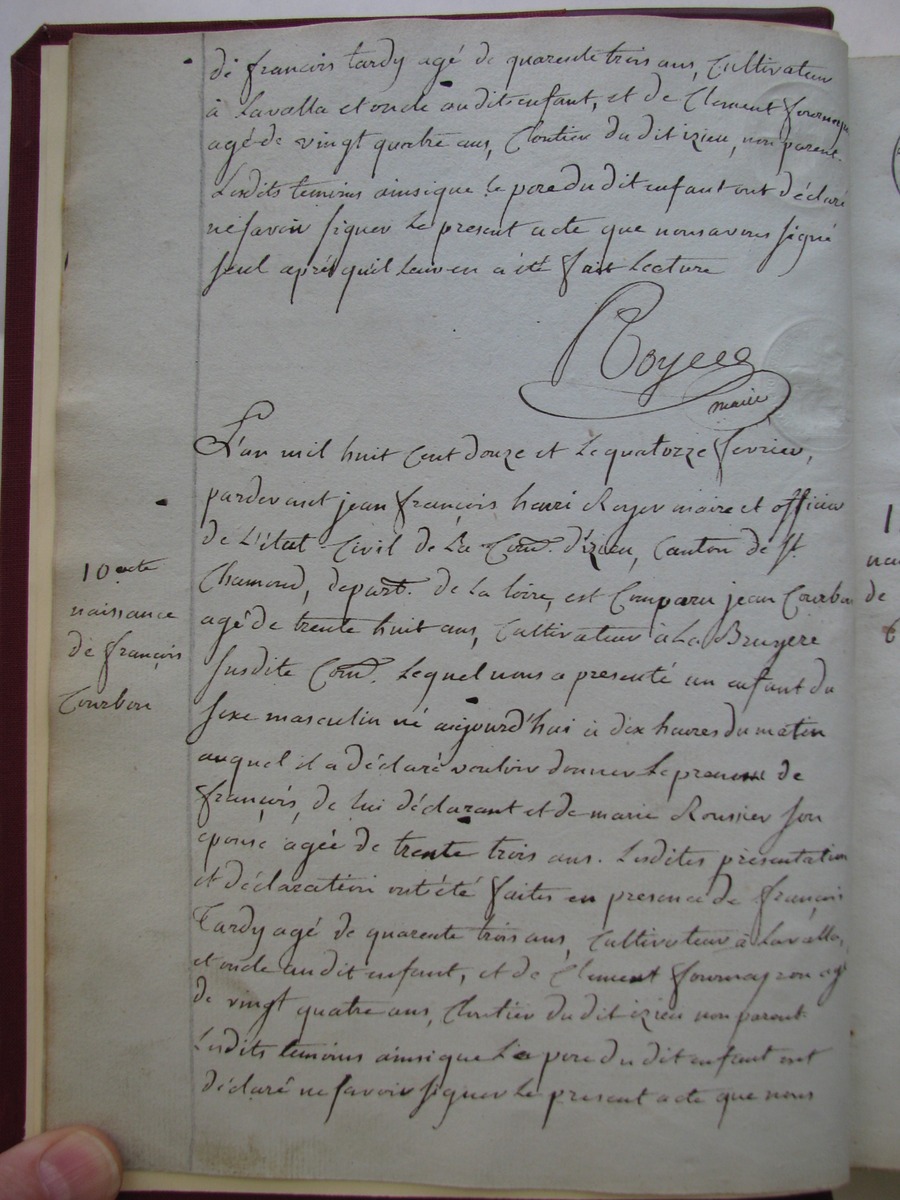 de françois tardy agé de quarente trois ans, Cultivateur
à Lavalla et oncle audit enfant, et de Clement fournayron
agé de vingt quatre ans, Cloutier du dit izieu, non parent.
Lesdits temoins ainsi que le pere du dit enfant ont déclaré
ne savoir signer Le present acte que nous avons signé
seul après qu'il leur en a été fait Lecture
Royer
maire
L'an mil huit Cent douze et Le quatorze février,
pardevant jean françois henri Royer maire et officier
de L'état Civil de La Com.e d'izieu, Canton de St
Chamond, depart.t de La loire, est Comparu jean Courbon
10 acte
naissance
de françois
Courbon
agé de trente huit ans, Cultivateur à La Bruyere
susdite Com.e Lequel nous a presenté un enfant du
sexe masculin né aujourd'hui à dix heures du matin
auquel il a déclaré vouloir donner Le prenom de
françois, de lui déclarant et de marie Roussier son
epouse agée de trente trois ans. Lesdites présentation
et déclaration ont été faites en presence de françois
Tardy agé de quarente trois ans, Cultivateur à Lavalla,
et oncle audit enfant, et de Clement fournayron agé
de vingt quatre ans, Cloutier du dit izieu non parent
Lesdits temoins ainsi que Le pere du dit enfant ont
déclaré ne savoir signer Le present acte que nous
1
nai
de